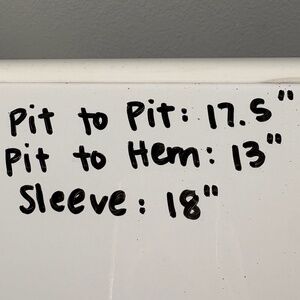 Pit to Pit: 17.5"
Pit to Hem: 13"
Sleeve: 18"